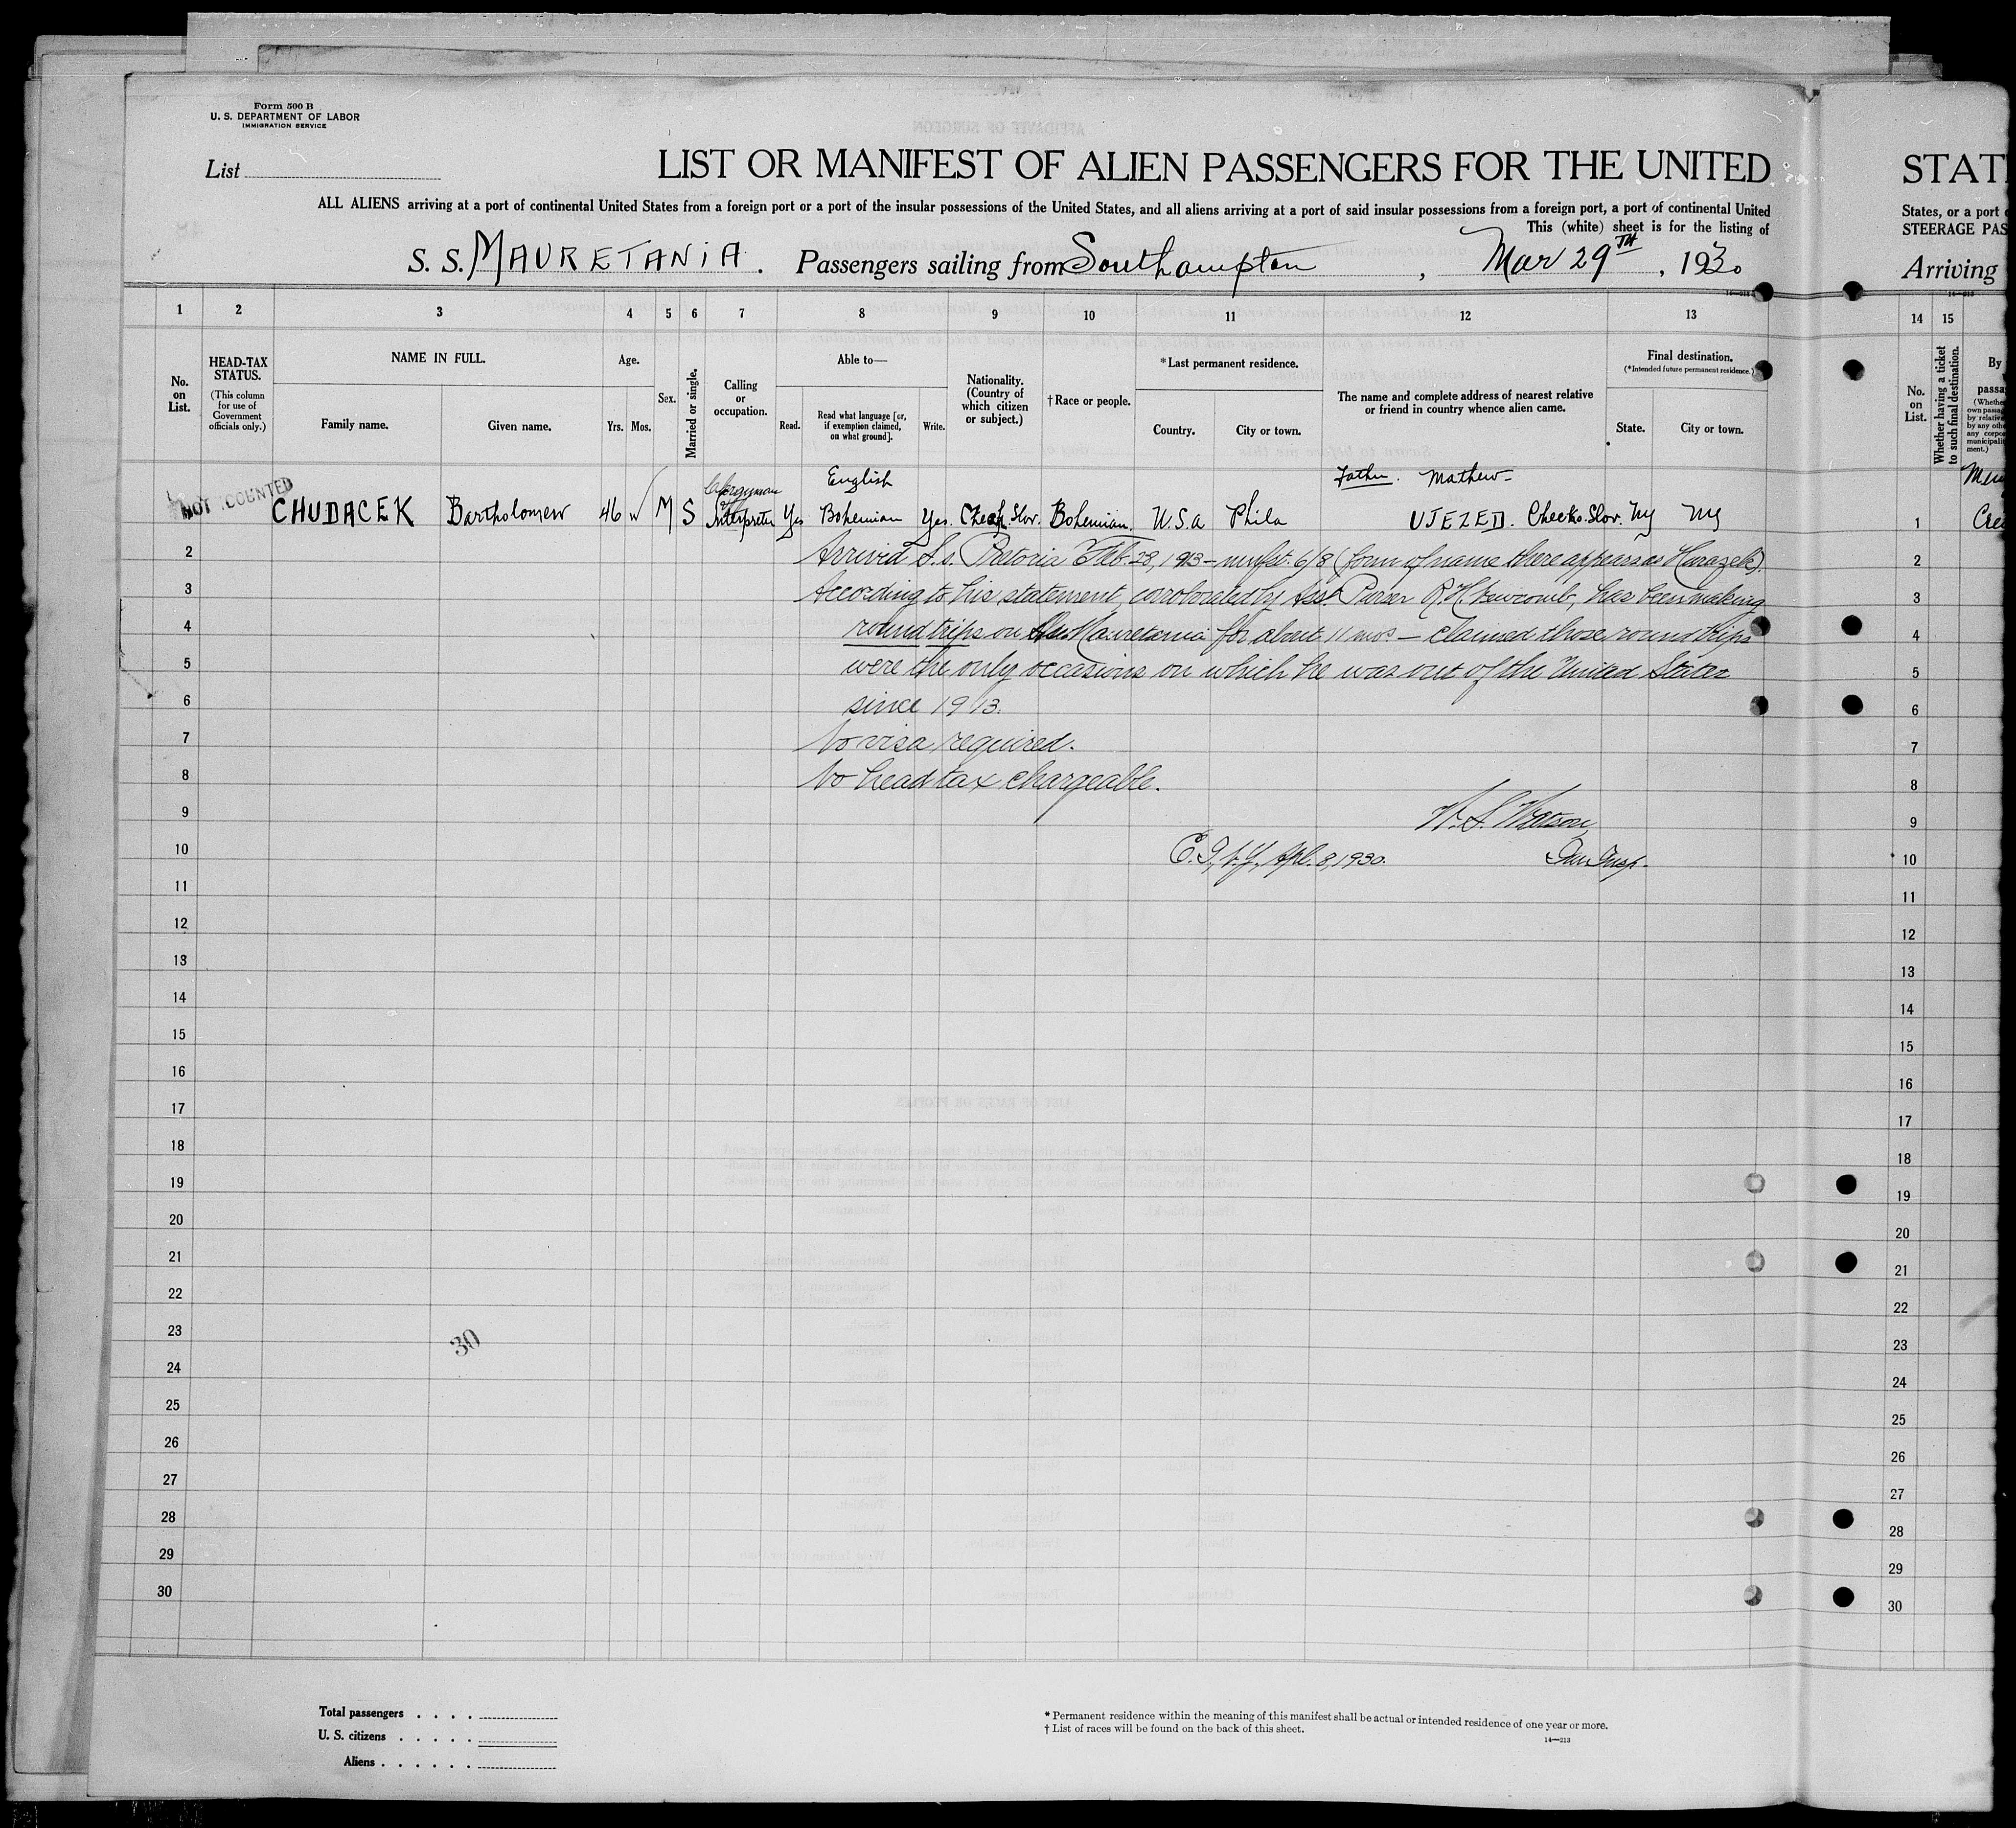 Form 500 B
U. S. DEPARTMENT OF LABOR
IMMIGRATION SERVICE
List
LIST OR MANIFEST OF ALIEN PASSENGERS FOR THE UNITED
ALL ALIENS arriving at a port of continental United States from a foreign port or a port of the insular possessions of the United States, and all aliens arriving at a port of said insular possessions from a foreign port, a port of continental United
This (white) sheet is for the listing of
S. S. MAURETANIA. Passengers sailing from Southampton, Mar 29TH, 1930
1 2 3 4 5 6 7 8 9 10 11 12 13
No. on List.
HEAD-TAX STATUS.
(This column for use of Government officials only.)
NAME IN FULL.
Family name. Given name.
Age.
Yrs. Mos.
Sex.
Married or single.
Calling or occupation.
Able to—
Read. Read what language [or, if exemption claimed, on what ground]. Write.
Nationality. (Country of which citizen or subject.)
†Race or people.
*Last permanent residence.
Country. City or town.
The name and complete address of nearest relative or friend in country whence alien came.
Final destination.
(*Intended future permanent residence.)
State. City or town.
English Father. Mathew
NOT COUNTED CHUDACEK Bartholomew 46 M S Interpreter Yes Bohemian Yes. Check. Slov. Bohemian. U.S.A Phila UJEZED. Checko. Slov. NY NY
Arrived S.s. Pretoria Feb. 28, 1913 – mnfst. 6/8 (form of name there appears as Hurazek).
According to his statement, corroborated by Asst. Purser R.H. Newcomb, has been making
round trips on Mauretania for about 11 mos. – Claimed those round trips
were the only occasions on which he was out of the United States
since 1913.
No visa required.
No head tax chargeable.
W. S. Watson,
E.I., N.Y., Apl. 8, 1930. Imm Insp.
1
2
3
4
5
6
7
8
9
10
11
12
13
14
15
16
17
18
19
20
21
22
23
24
25
26
27
28
29
30
30
Total passengers
U. S. citizens
Aliens
* Permanent residence within the meaning of this manifest shall be actual or intended residence of one year or more.
† List of races will be found on the back of this sheet.
14—213
STAT
States, or a port
STEERAGE PAS
Arriving
14—213
14 15
No. on List.
Whether having a ticket to such final destination.
By
passa
1
2
3
4
5
6
7
8
9
10
11
12
13
14
15
16
17
18
19
20
21
22
23
24
25
26
27
28
29
30